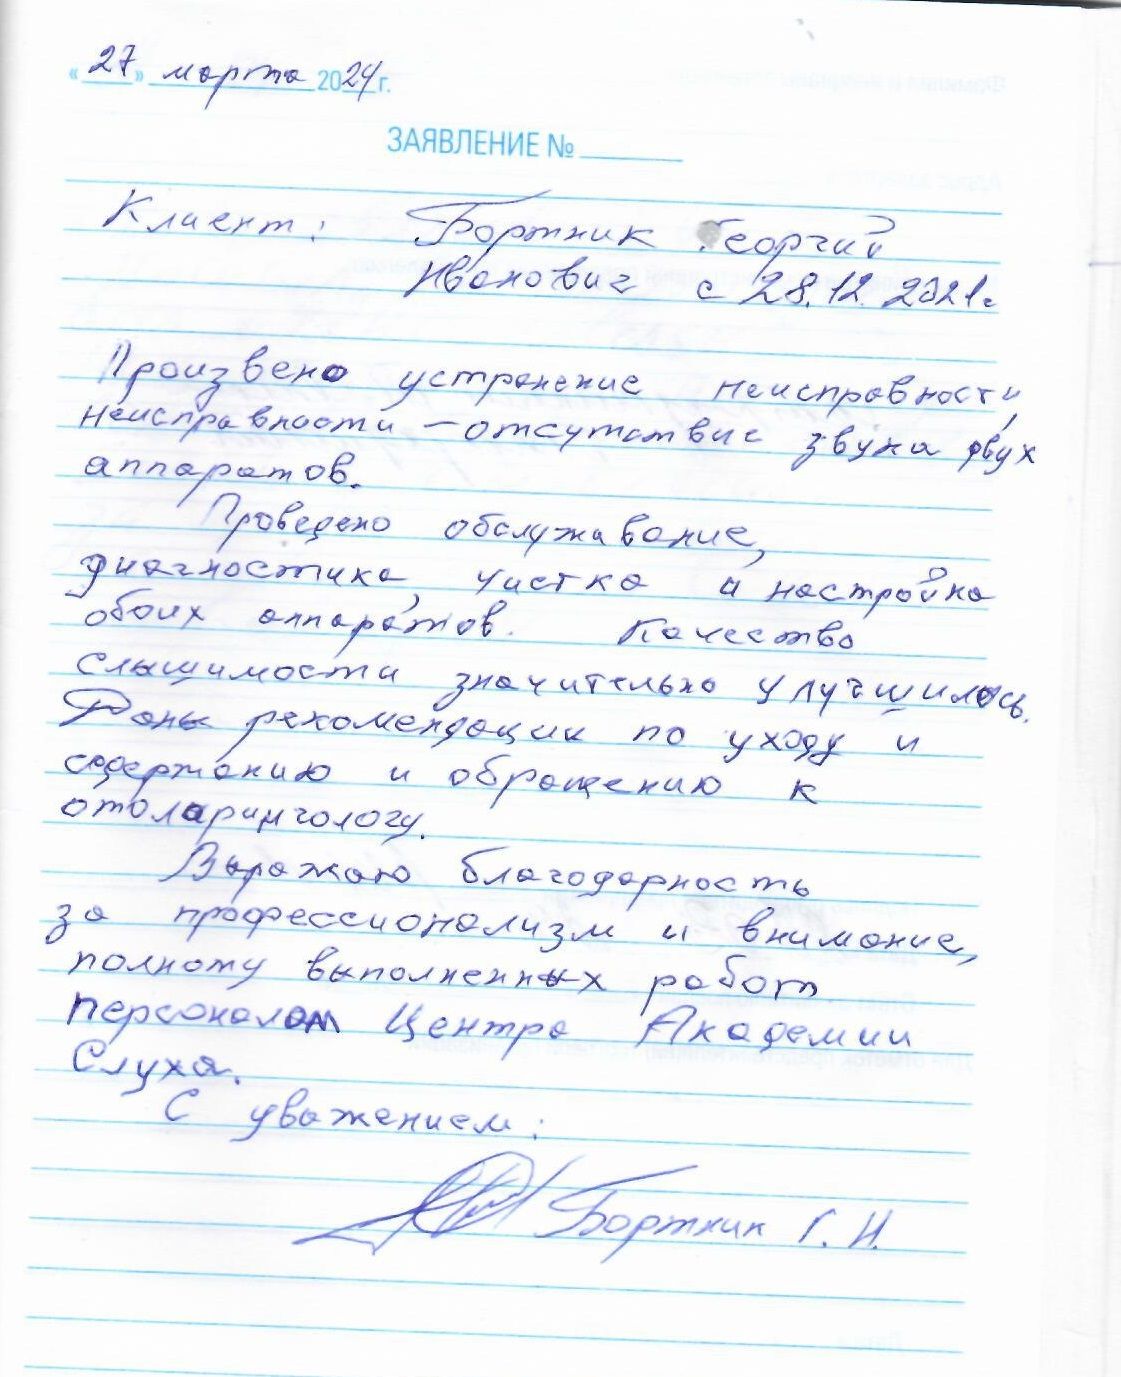 «27» марта 2024 г.
ЗАЯВЛЕНИЕ №
Клиент: Бортник Георгий
Иванович с 28.12.2021г
Произвено устранение неисправности,
неисправности – отсутствие звука двух
аппаратов.
Проведено обслуживание,
диагностика, чистка и настройка
обоих аппаратов. Качество
слышимости значительно улучшилось.
Даны рекомендации по уходу и
содержанию и обращению к
отоларингологу.
Выражаю благодарность
за профессионализм и внимание,
полноту выполненных работ
персоналом Центра Академии
Слуха.
С уважением:
Бортник Г. И.